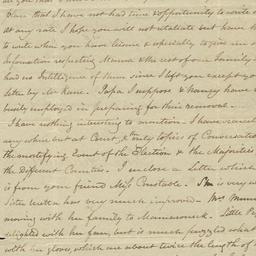 than that I have not had time & opportunity to write
at any rate I hope you will not retaliate but have the
to write when you have leisure & especially to give me
information respecting Mamma & the rest of our family
had no Intelligence of them since I left you except yo
letter by Mr Kane. Papa I suppose & Nancy have
busily employed in preparing for their removal.
I have nothing interesting to mention. I have
any where but at Court, & truly topics of Conversation
the mortifying Event of the Election & the Majorities
the different Counties. I enclose a Letter which
is from your friend Miss Constable. She is very w
Sister has very much improved. Mrs Munro
moving with her family to Mamaroneck. Little Pe
delighted with her fan, but is much puzzled what
with her gloves, which are about twice the length of